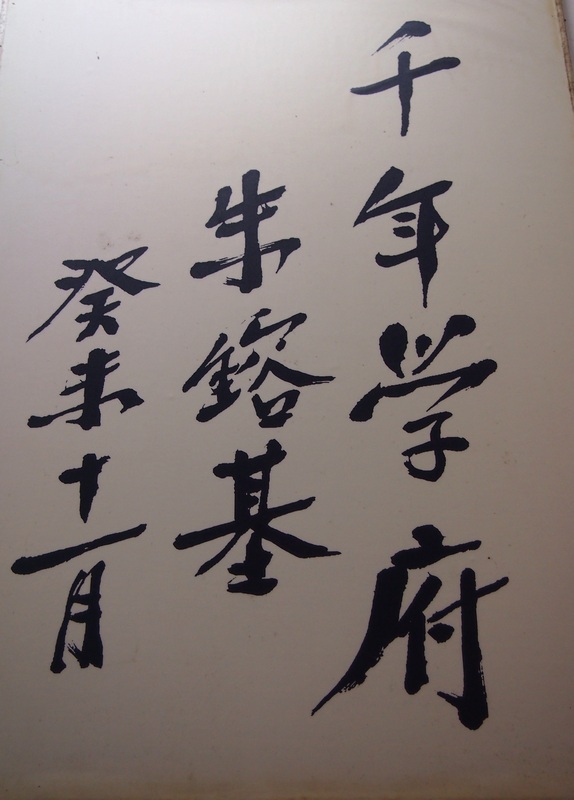 千年学府
朱鎔基
癸未十一月